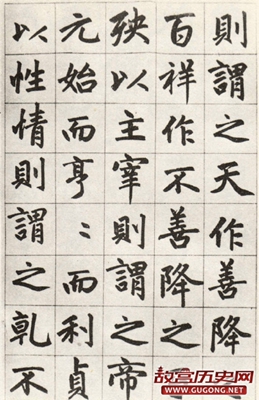 則謂之天作善降
百祥作不善降之
殃以主宰則謂之帝
元始而亨〻而利貞
以性情則謂之乾不
故宫历史网
WWW.GUGONG.NET